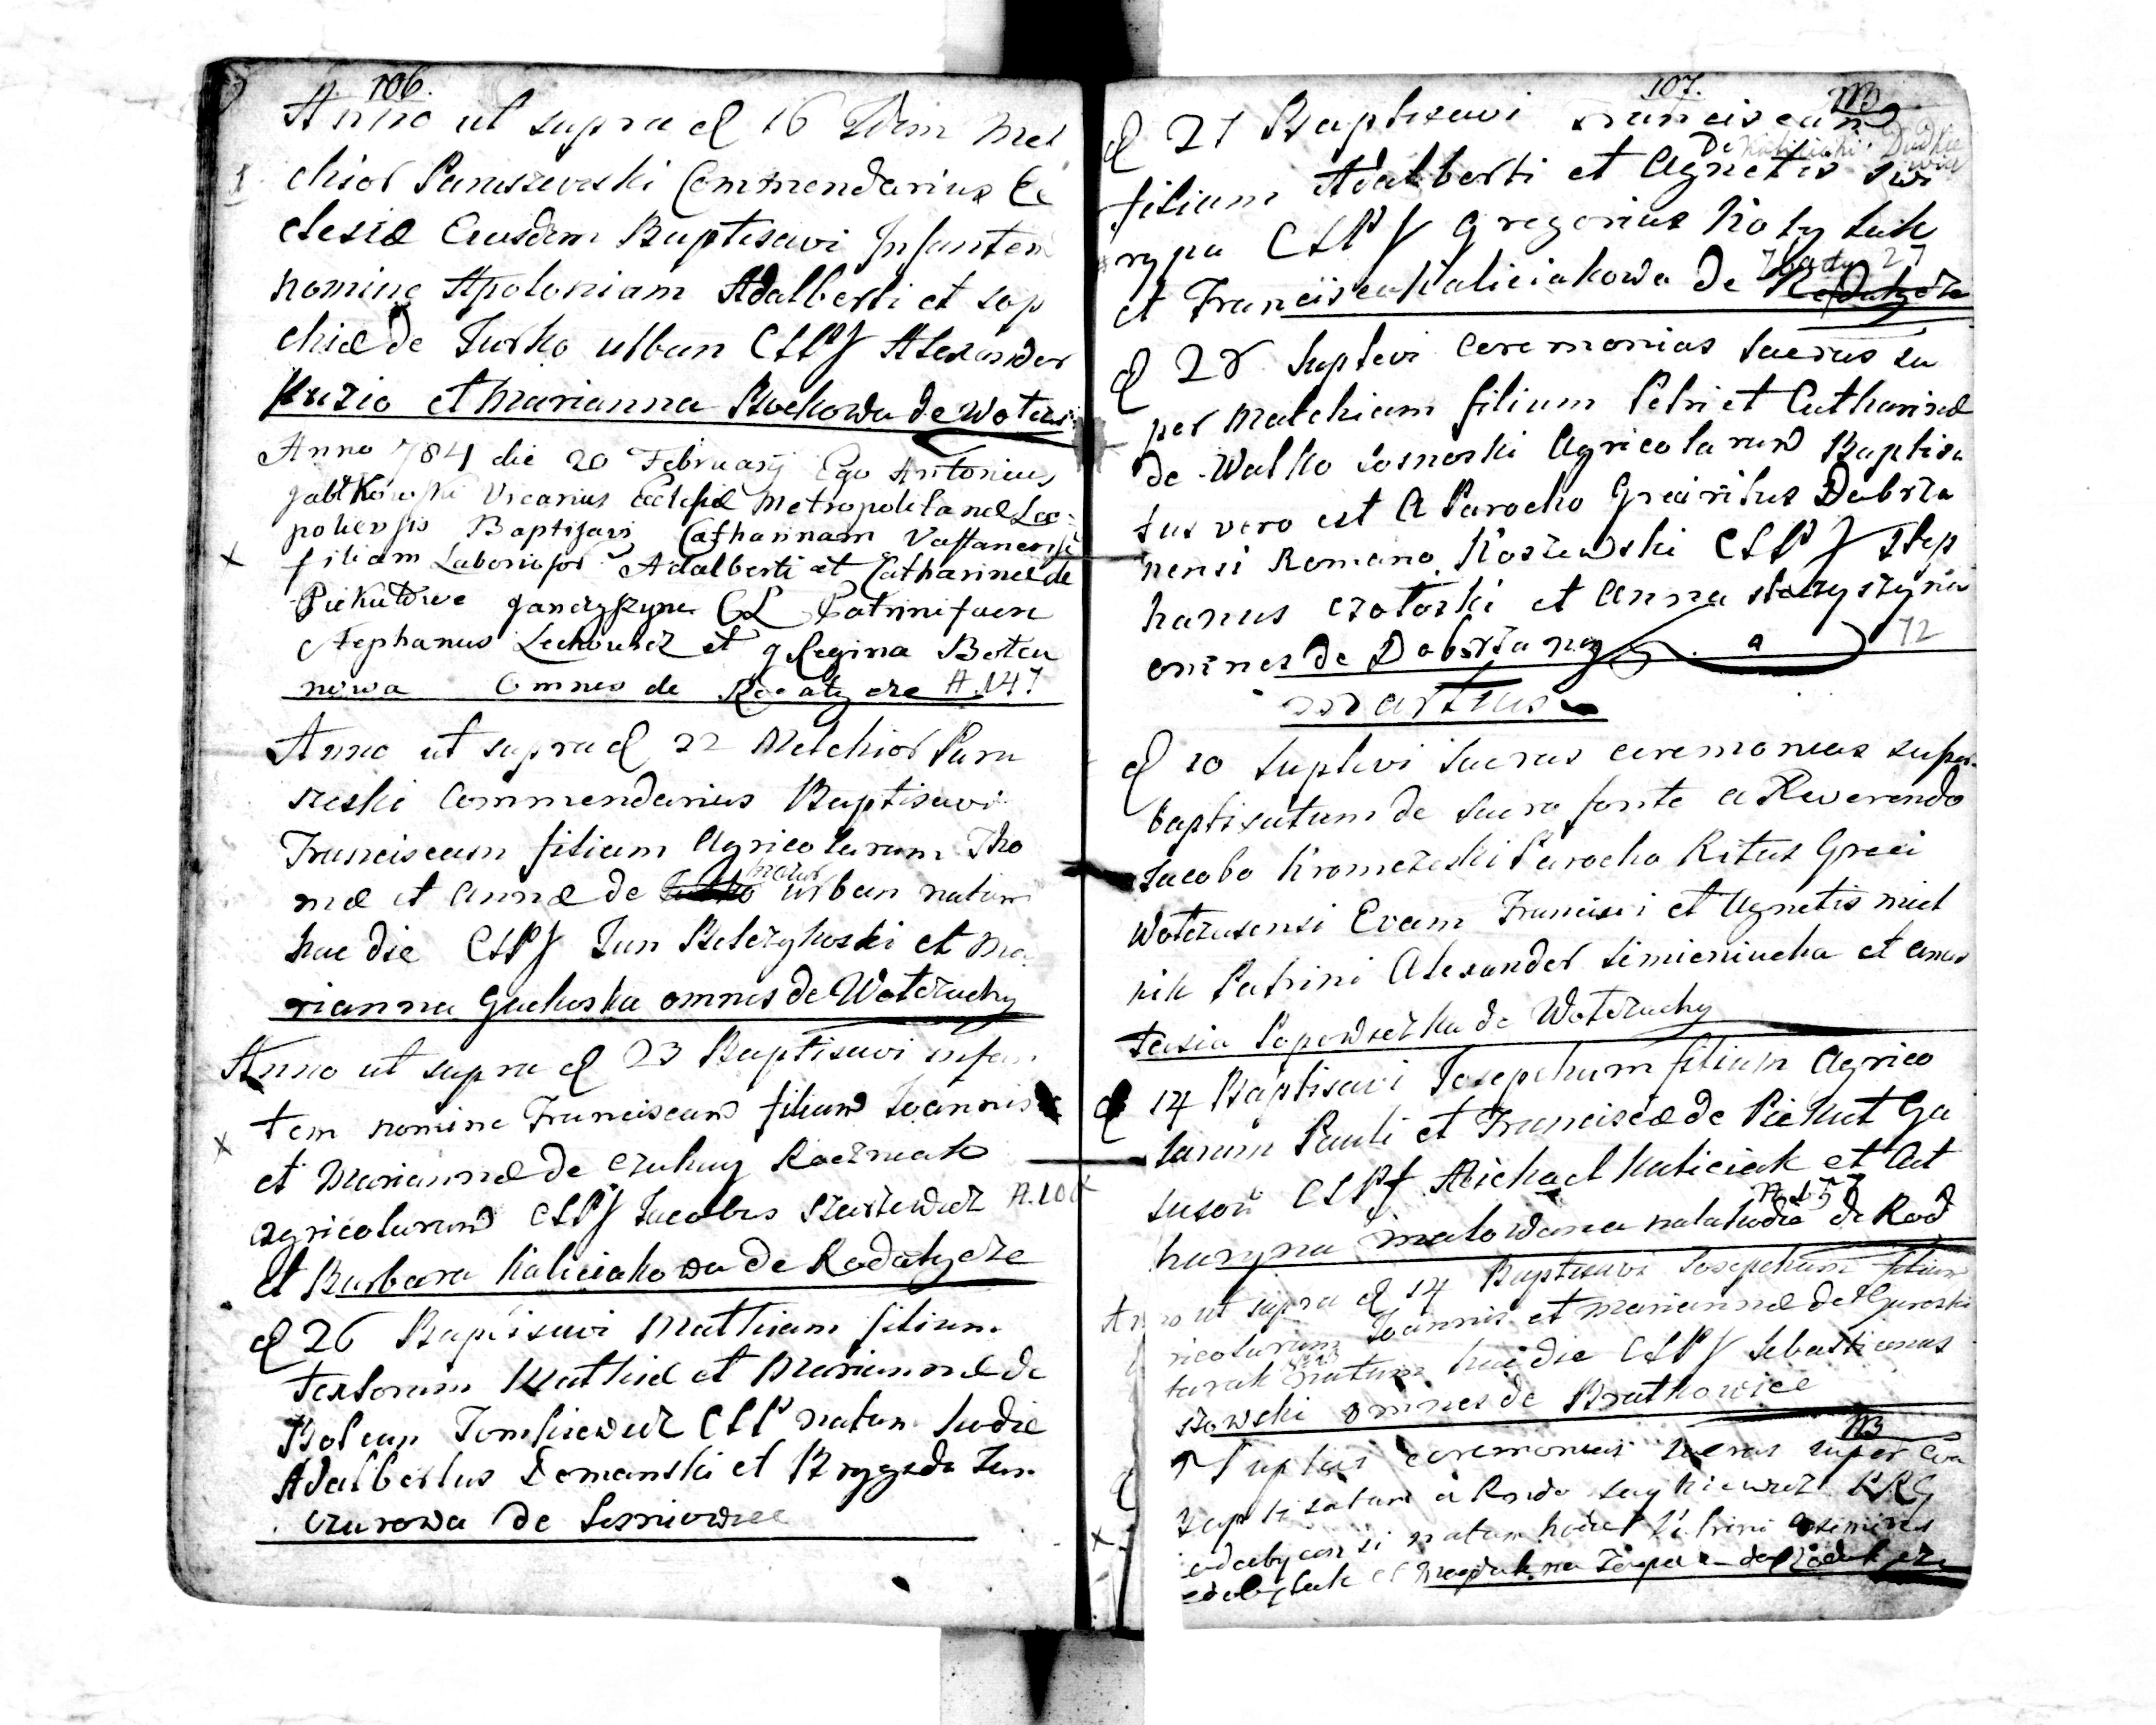 106.
Anno ut supra d 16 Idem Mel
chior Paruszewski Commendarius Ec
clesiæ Eiusdem Baptisavi Infantem
nomine Apoloniam Adalberti et Sop
chiæ de Turko urban CLPf Alexander
Kuzio et Marianna Bockowa de Wotczu
Anno 784 die 20 Februarij Ego Antonius
Jabłkowski Vicarius Ecclesiæ Metropolitanæ Leo
poliensis Baptisavi Catharinam
filiam Laborios Adalberti et Catharinæ de
Piekutowe Janczyszyn CL Patrini fuere
Stephanus Lechowicz et Regina Boten
nowa Omnes de Rodatycze A. 147
Anno ut supra d 22 Melchior Paru
szeski Commendarius Baptisavi
Franciscum filium Agricolarum Tho
mæ et Annæ de urban natum
hac die CLPf Jan Belczykoski et Ma
rianna Guchoska omnes de Wotczuchy
Anno ut supra d 23 Baptisavi infan
tem nomine Franciscum filium Joannis
et Mariannæ de Czuhuy Kaczmak
agricolarum CLPf Jacobus Szustewicz A. 100
et Barbara Kaliciakowa de Rodatycze
d 26 Baptisavi Mathiam filium
Textorum Mathiæ et Mariannæ de
Bolean Tomkiewicz CLP natum hodie
Adalbertus Domanski et Brygida Jan
czurowa de Lesniowice
107.
NB
d 27 Baptisavi Franciscum
De Kaliciaki Dudkiewicz
filium Adalberti et Agnetis Swi
rypa CLPf Gregorius Kotyluk
et Francisca Kaliciakowa de Rodatycze
27
d 28 Suplevi Ceremonias Sacras su
per Malchiam filium Petri et Catharinæ
de Walko Sosnoski Agricolarum Baptisa
tus vero est a Parocho Græci ritus Dobrza
nensi Romano Koszewski CLPf Step
hanus Czotoski et Anna Staszyszyna
omnes de Dobrzany 72
Martius
d 10 Suplevi Sacras ceremonias super
baptisatum de Sacro fonte a Reverendo
Jacobo Kromczeski Parocho Ritus Græci
Wotczusensi Evam Francisci et Agnetis Miel
nik Patrini Alexander Simieniucha et Anas
tasia Popowiczka de Wotczuchy
d 14 Baptisavi Josephum filium Agrico
larum Pauli et Franciscæ de Piekut Ga
CLPf Michael Kaliciak et Cat
A 157
haryna Malowana nata hodie de Rod
Anno ut supra d 14 Baptisavi Josephum filium
ricolarum Joannis et Mariannæ de Guroski
turak natum hac die CLPf Sebastianus
szowski omnes de Bratkowice
NB
17 Suplevi ceremonias sacras super Eva
baptisatum a Rndo Saykiewicz PRG
odatycensi natum hodie Patrini Casimirus
et Magdalena de Rodatycze